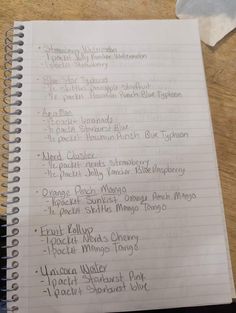 • Strawberry Watermelon
- 1 packet Jolly Rancher Watermelon
- packet Strawberry
• Blue Star Typhoon
- ½ skittles pineapple starfruit
- ½ packet Hawaiian Punch Blue Typhoon
•
- packet
- ½ packet Starburst Blue
- ½ packet Hawaiian Punch Blue Typhoon
• Nerd Cluster
- ½ packet nerds strawberry
- ½ packet Jolly Rancher Blue Raspberry
• Orange Peach Mango
- 1 packet Sunkist Orange Peach Mango
- ½ packet Skittles Mango Tango
• Fruit Rollup
- 1 packet Nerds Cherry
- 1 packet Mango Tango
• Unicorn Water
- 1 packet Starburst Pink
- 1 packet Starburst blue